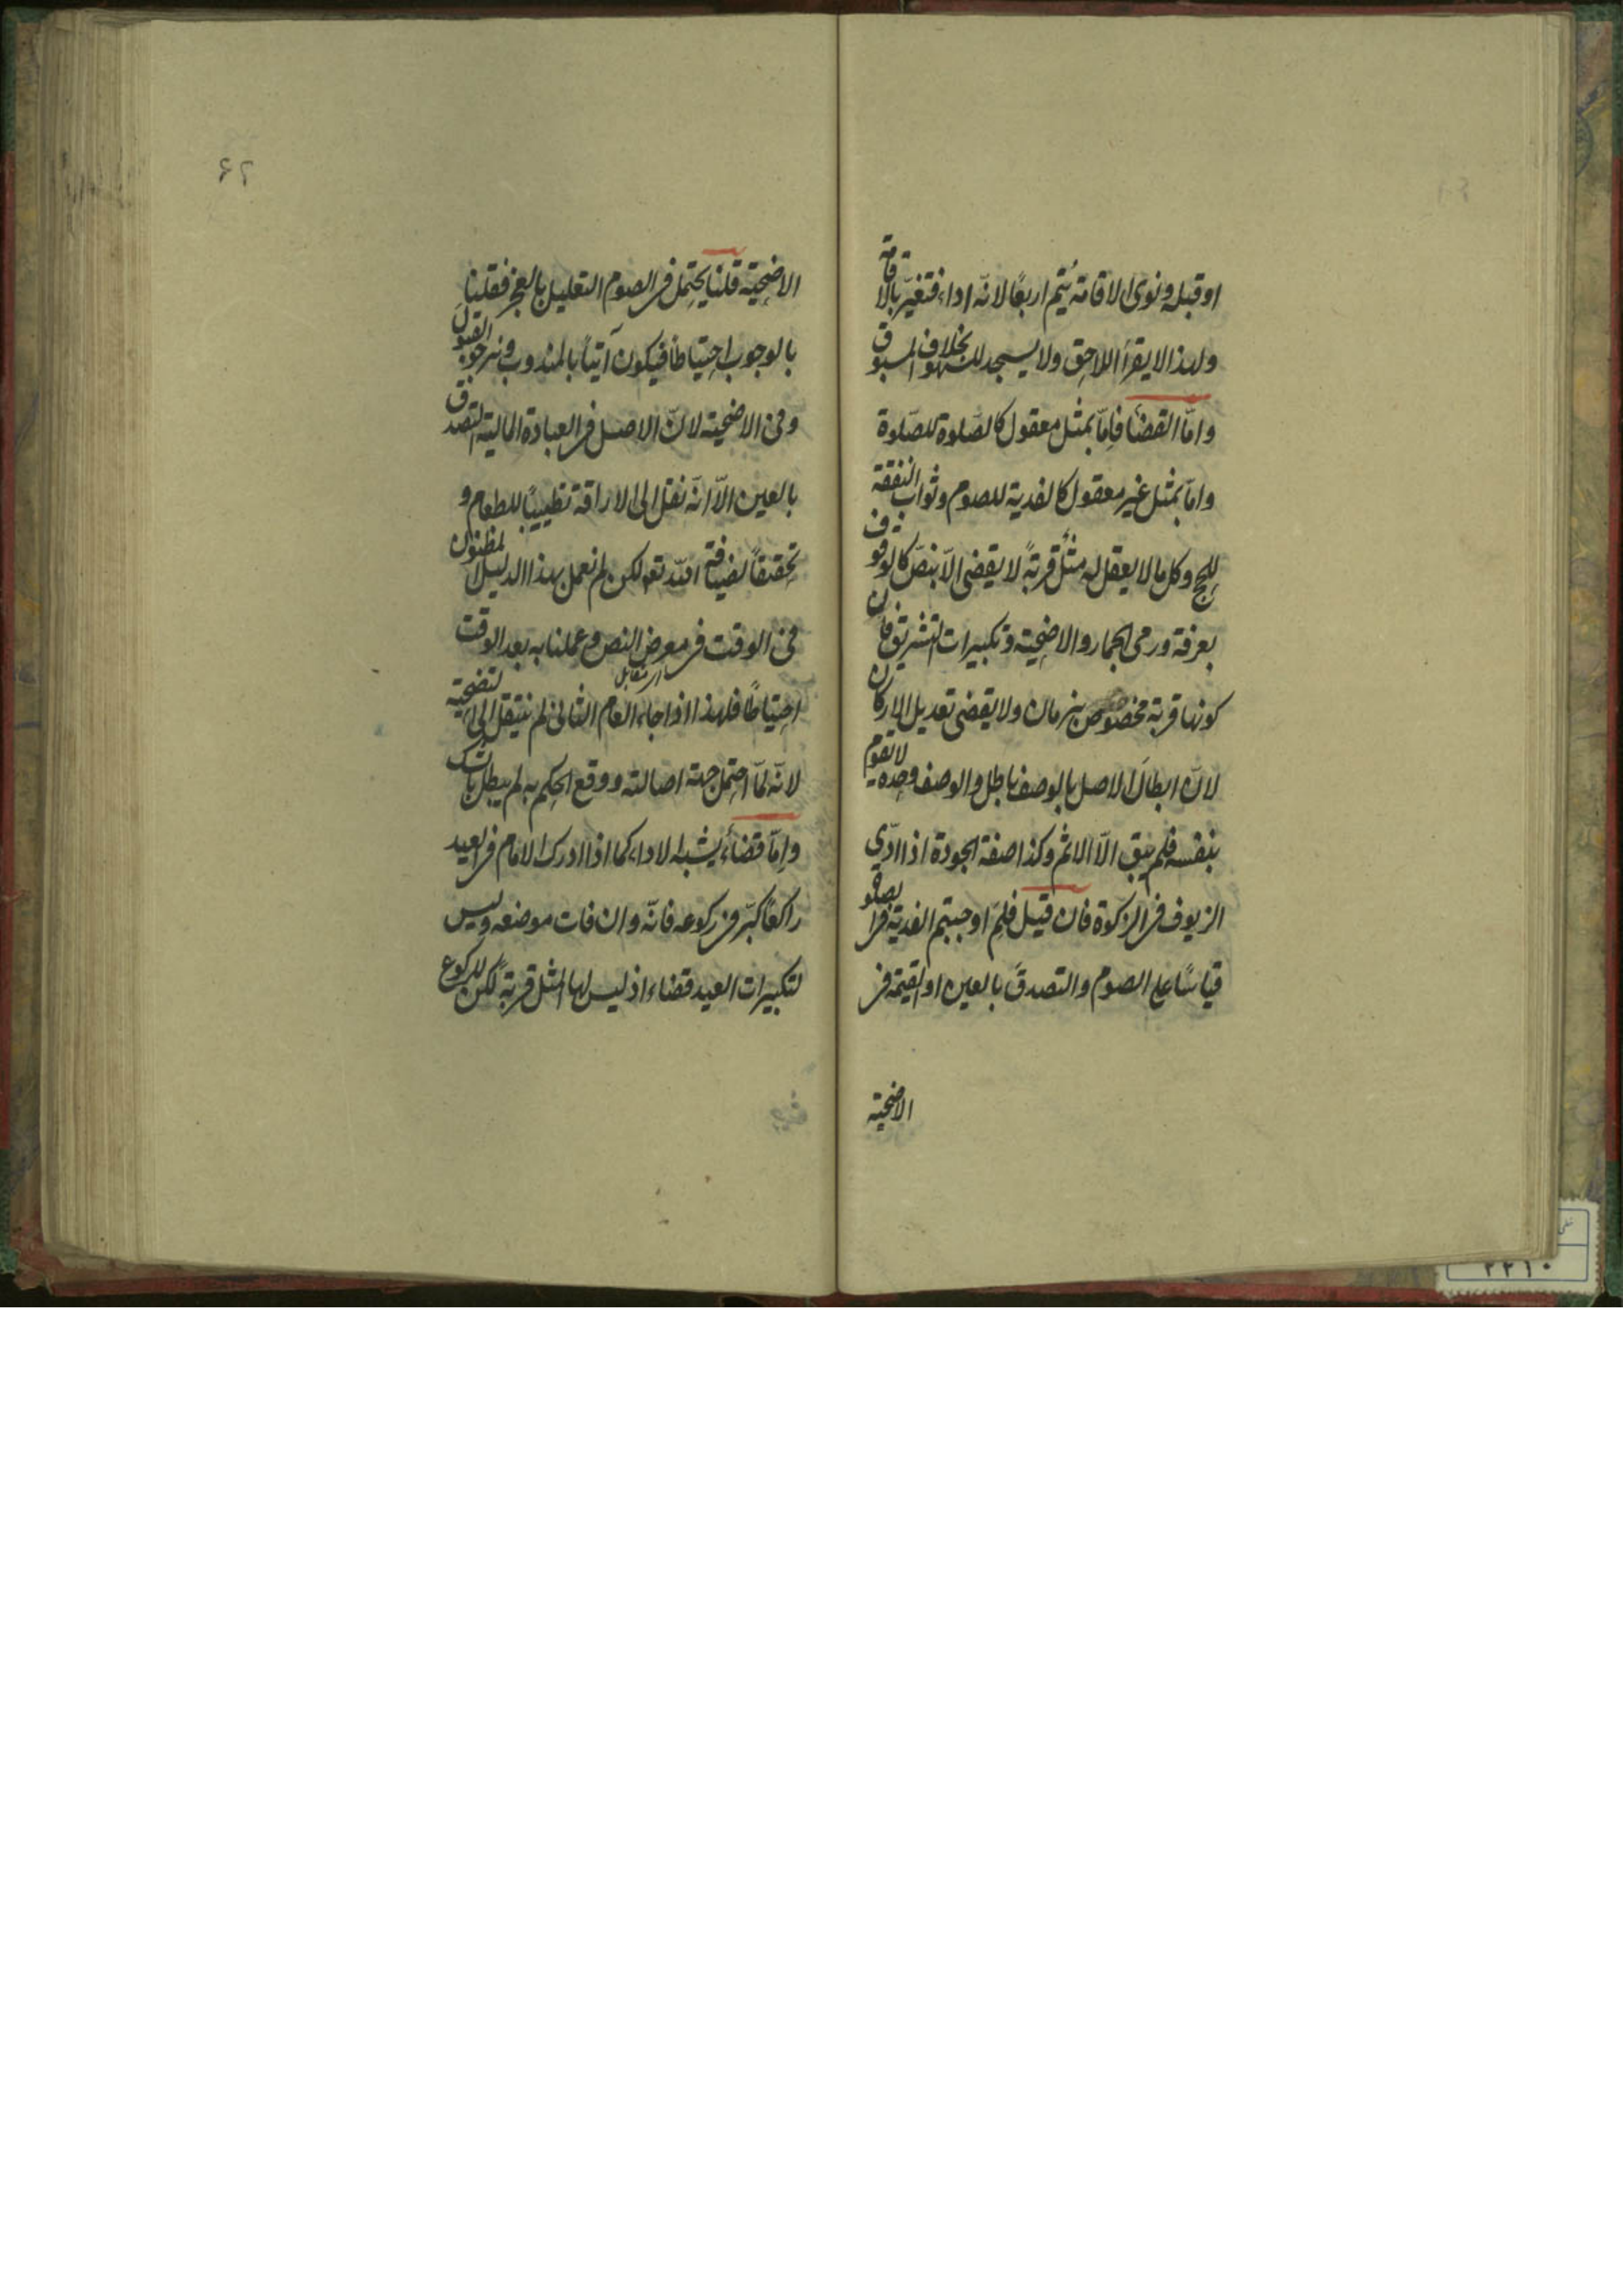 او قبله ونوى الاقامة يُتمّ اربعًا لانّه اداء فتغيّر بالاقامة
ولهذا لا يقرأ اللاحق ولا يسجد للسهو بخلاف المسبوق
وامّا القضاء فامّا بمثل معقول كالصّلوة للصّلوة
وامّا بمثل غير معقول كالفدية للصوم وثواب النفقة
للحج وكل ما لا يعقل له مثل قربةً لا يقضى الّا بنصّ كالوقوف
بعرفة ورمى الجمار والاضحية وتكبيرات التشريق فانّ
كونها قربة مخصوص بزمان ولا يقضى تعديل الاركان
لانّ ابطال الاصل بالوصف باطل والوصف وحده لا يقوم
بنفسه فلم يبق الّا الاثم وكذا صفة الجودة اذا ادّى
الزيوف فى الزكوة فان قيل فلِمَ اوجبتم الفدية فى الصلو
قياسًا على الصوم والتصدق بالعين او القيمة فى
الاضحية
۶۲
الاضحية قلنا يحتمل فى الصوم التعليل بالعجز فقلنا
بالوجوب احتياطا فيكون آتيًا بالمندوب ونرجو القبول
وفى الاضحية لانّ الاصل فى العبادة المالية التصدق
بالعين الّا انّه نقل الى الاراقة تطييبًا للطعام و
تحقيقًا لضيافة الله تعو لكن لم نعمل بهذا الدليل المظنون
فى الوقت فى معرض النص وعملنا به بعد الوقت
اى مقابل
احتياطًا فلهذا اذا جاء العام الثانى لم ينتقل الى التضحية
لانّه لمّا احتمل جهة اصالته ووقع الحكم به لم يبطل بالشك
وامّا قضاءً يشبه الاداء كما اذا ادرك الامام فى العيد
راكعًا كبّر فى ركوعه فانّه وان فات موضعه وليس
لتكبيرات العيد قضاء اذ ليس لها المثل قربةً لكن للركوع
۲۲۱۰